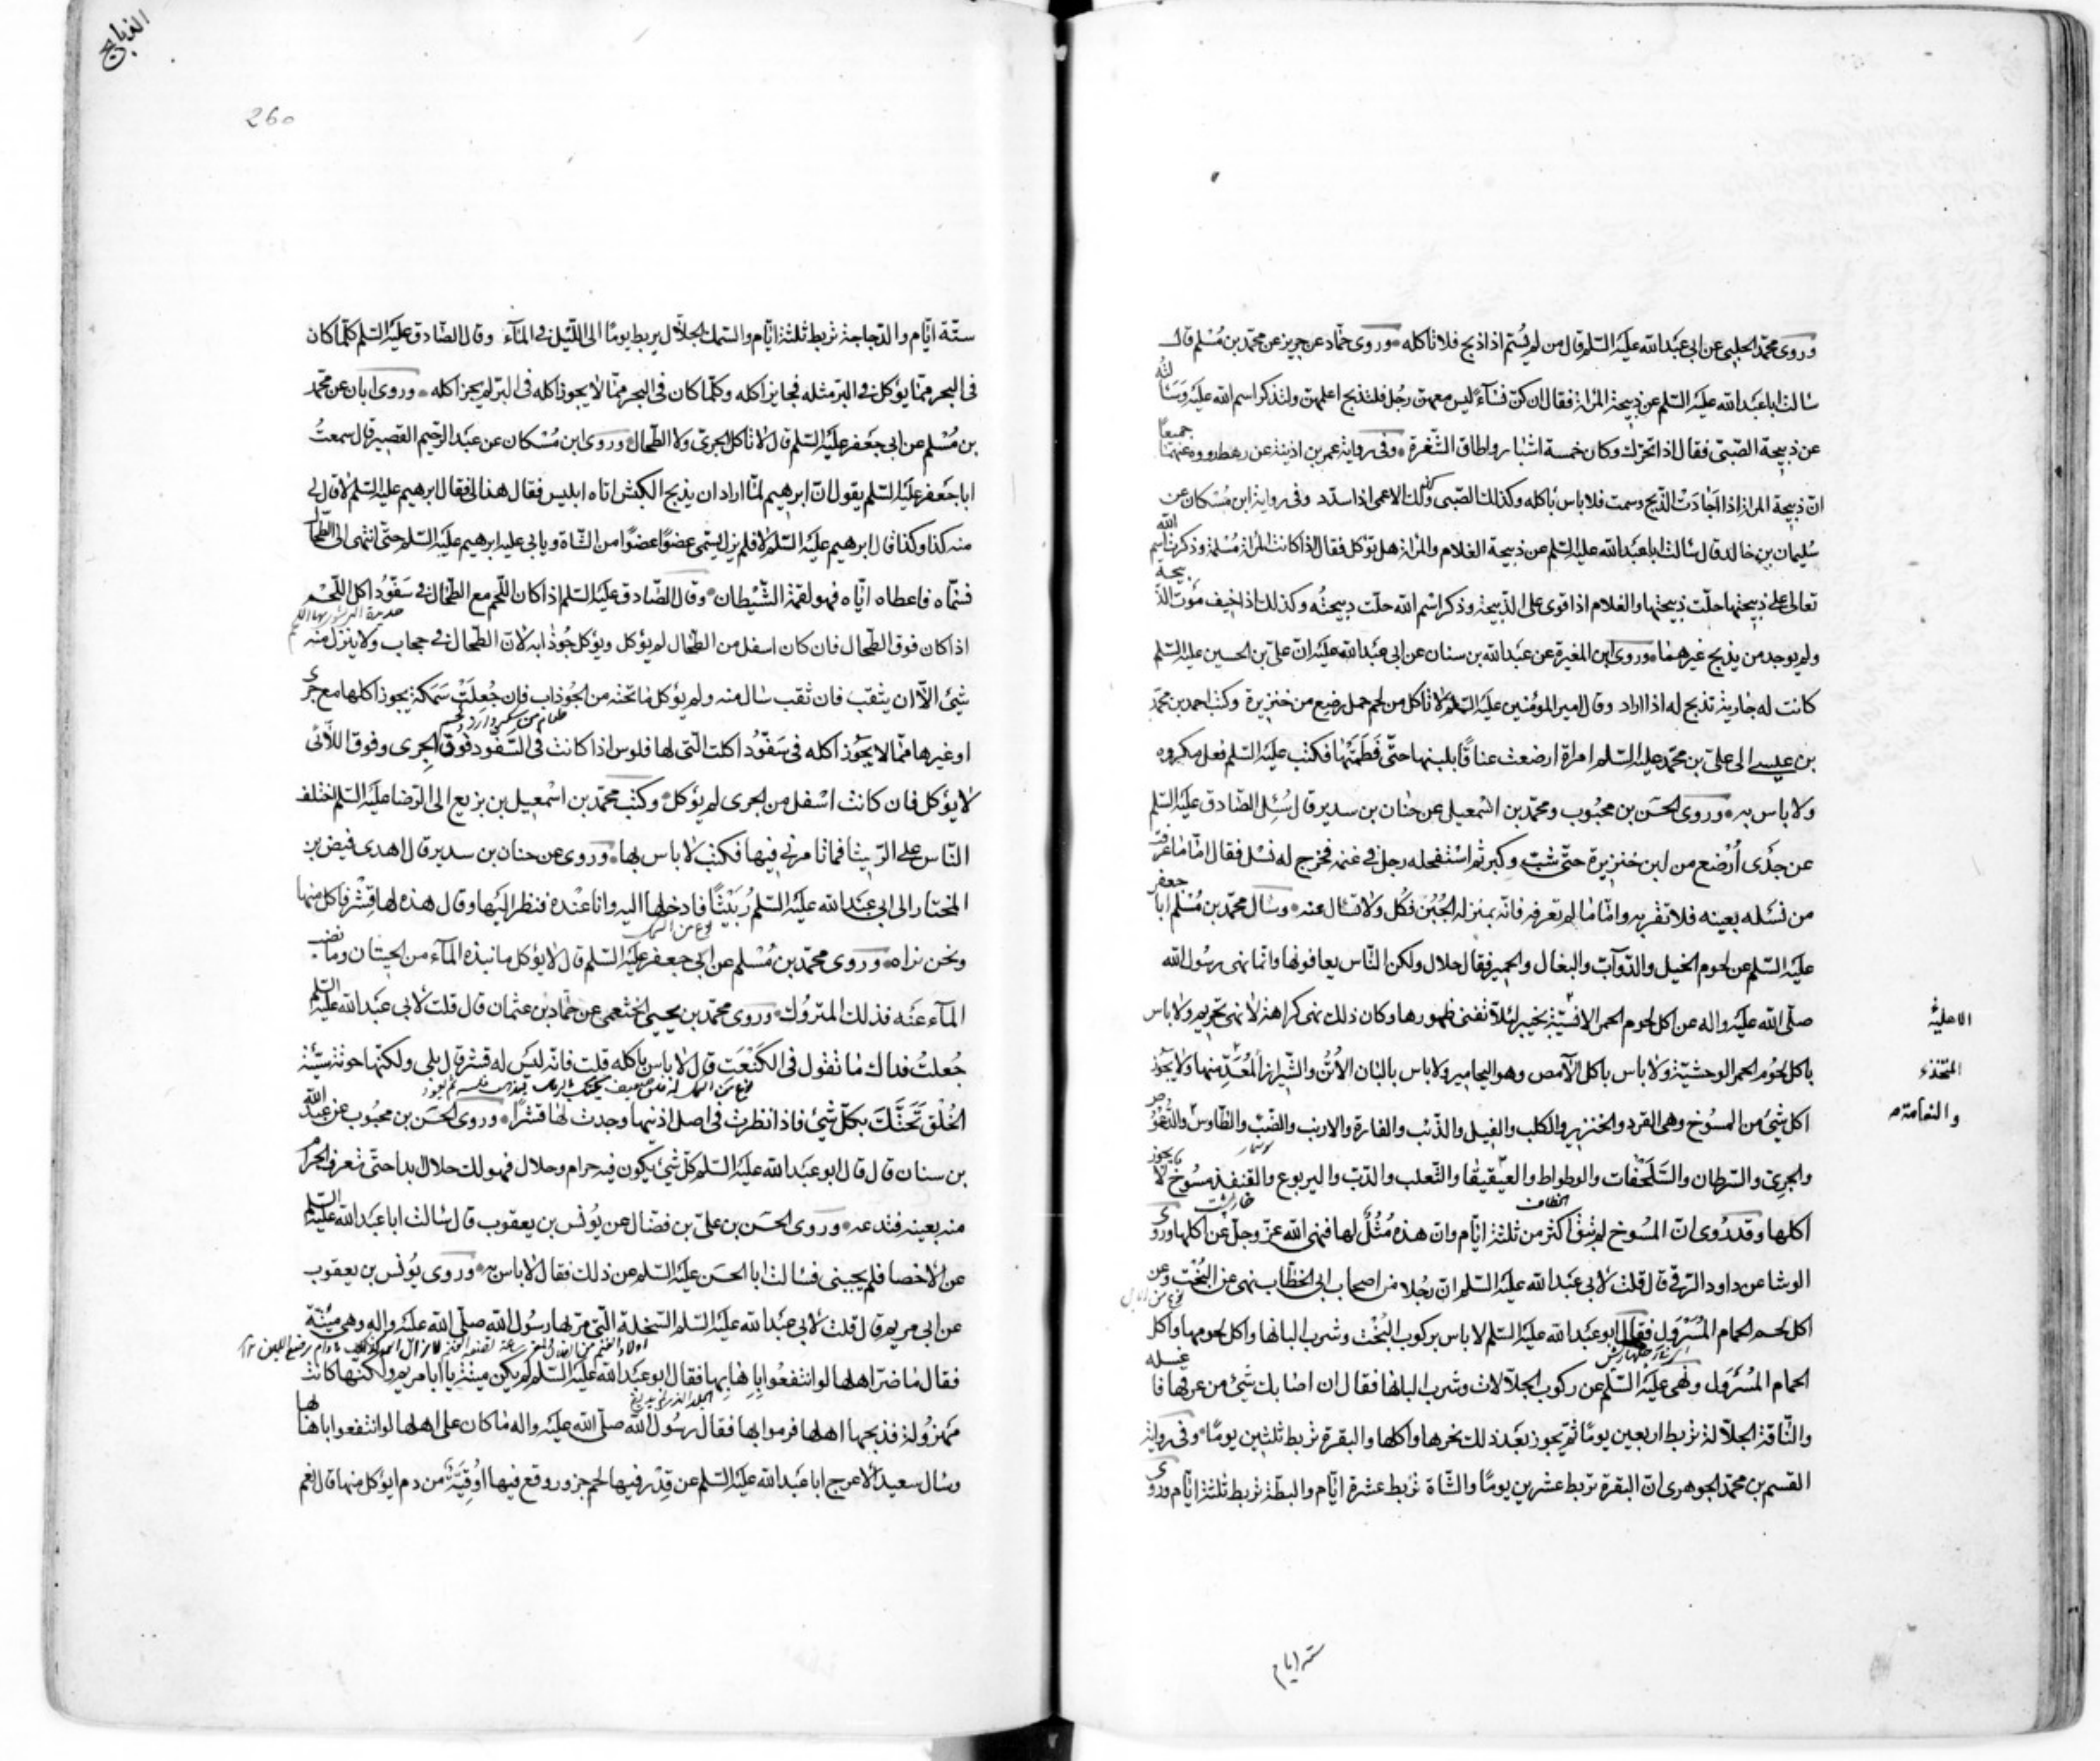 وروى محمد الحلبي عن ابي عبد الله عليه السلم قال من لم يسم اذا ذبح فلا تاكله وروى حماد عن حريز عن محمد بن مسلم قال
سالت ابا عبد الله عليه السلم عن ذبيحة المراة فقال ان كن نساء ليس معهن رجل فلتذبح اعلمهن ولتذكر اسم الله عليه وسالته
عن ذبيحة الصبي فقال اذا تحرك وكان خمسة اشبار واطاق الشفرة وفي رواية عمر بن اذينة عن رهط رووه عنهما جميعا
ان ذبيحة المراة اذا اجادت الذبح وسمت فلا باس باكله وكذلك الصبي وكذلك الاعمى اذا سدد وفي رواية ابن مسكان عن
سليمان بن خالد قال سالت ابا عبد الله عليه السلم عن ذبيحة الغلام والمراة هل تؤكل فقال اذا كانت المراة مسلمة وذكرت اسم الله
تعالى على ذبيحتها حلت ذبيحتها والغلام اذا قوى على الذبيحة وذكر اسم الله حلت ذبيحته وكذلك اذا خيف موت الذبيحة
ولم يوجد من يذبح غيرهما وروى ابن المغيرة عن عبد الله بن سنان عن ابي عبد الله عليه ان علي بن الحسين عليه السلم
كانت له جارية تذبح له اذا اراد وقال امير المؤمنين عليه السلم لا تاكل من لحم حمل رضيع من خنزيرة وكتب احمد بن محمد
بن عيسى الى علي بن محمد عليه السلم امراة ارضعت عناقا بلبنها حتى فطمتها فكتب عليه السلم فعل مكروه
ولا باس به وروى الحسن بن محبوب ومحمد بن اسمعيل عن حنان بن سدير قال سئل الصادق عليه السلم
عن جدى ارضع من لبن خنزيرة حتى شب وكبر ثم استفحله رجل في غنمه فخرج له نسل فقال اما ما عرفت
من نسله بعينه فلا تقربه واما ما لم تعرفه فانه بمنزلة الجبن فكل ولا تسال عنه وسال محمد بن مسلم ابا جعفر
عليه السلم عن لحوم الخيل والدواب والبغال والحمير فقال حلال ولكن الناس يعافونها وانما نهى رسول الله
صلى الله عليه واله عن اكل لحوم الحمر الانسية بخيبر لئلا تفنى ظهورها وكان ذلك نهى كراهة لا نهى تحريم ولا باس
الاهلية
باكل لحوم الحمر الوحشية ولا باس باكل الآمص وهو اليحامير ولا باس بالبان الاتن والشيراز المعد منها ولا يجوز
المتخذ
اكل شئ من المسوخ وهى القرد والخنزير والكلب والفيل والذئب والفارة والارنب والضب والطاوس والدعموص
والنعامة
والجرى والسرطان والسلحفات والوطواط والعيقيقا والثعلب والدب واليربوع والقنفذ مسوخ لا يجوز
اكلها وقد روى ان المسوخ لم تبق اكثر من ثلثة ايام وان هذه مثل لها فنهى الله عز وجل عن اكلها وروى
الوشا عن داود الرقي قال قلت لابي عبد الله عليه السلم ان رجلا من اصحاب ابي الخطاب نهى عن البخت وعن
اكل لحم الحمام المسرول فقال ابو عبد الله عليه السلم لا باس بركوب البخت وشرب البانها واكل لحومها واكل
الحمام المسرول ونهى عليه السلم عن ركوب الجلالات وشرب البانها فقال ان اصابك شئ من عرقها فاغسله
والناقة الجلالة تربط اربعين يوما ثم يجوز بعد ذلك نحرها واكلها والبقرة تربط ثلثين يوما وفي رواية
القسم بن محمد الجوهرى ان البقرة تربط عشرين يوما والشاة تربط عشرة ايام والبطة تربط ثلثة ايام وروى
ستة ايام
الذبايح
260
ستة ايام والدجاجة تربط ثلثة ايام والسمك الجلال يربط يوما الى الليل في المآء وقال الصادق عليه السلم كلما كان
في البحر مما يؤكل في البر مثله فجايز اكله وكلما كان في البحر مما لا يجوز اكله في البر لم يجز اكله وروى ابان عن محمد
بن مسلم عن ابي جعفر عليه السلم قال لا تاكل الجرى ولا الطحال وروى ابن مسكان عن عبد الرحيم القصير قال سمعت
ابا جعفر عليه السلم يقول ان ابرهيم لما اراد ان يذبح الكبش اتاه ابليس فقال هذا لي فقال ابرهيم عليه السلم لا قال لي
منه كذا وكذا قال ابرهيم عليه السلم لا فلم يزل يسمى عضوا عضوا من الشاة ويابى عليه ابرهيم عليه السلم حتى انتهى الى الطحال
فسماه فاعطاه اياه فهو لقمة الشيطان وقال الصادق عليه السلم اذا كان اللحم مع الطحال في سفود اكل اللحم
اذا كان فوق الطحال فان كان اسفل من الطحال لم يؤكل ويؤكل جوذابه لان الطحال في حجاب ولا ينزل منه
شئ الا ان يثقب فان ثقب سال منه ولم يؤكل ما تحته من الجوذاب فان جعلت سمكة يجوز اكلها مع جرى
او غيرها مما لا يجوز اكله في سفود اكلت التي لها فلوس اذا كانت في السفود فوق الجرى وفوق اللائى
لا يؤكل فان كانت اسفل من الجرى لم يؤكل وكتب محمد بن اسمعيل بن بزيع الى الرضا عليه السلم اختلف
الناس على الربيثا فما تامرني فيها فكتب لا باس بها وروى عن حنان بن سدير قال اهدى فيض بن
المختار الى ابي عبد الله عليه السلم ربيثا فادخلها اليه وانا عنده فنظر اليها وقال هذه لها قشر فاكل منها
نوع من السمك
ونحن نراه وروى محمد بن مسلم عن ابي جعفر عليه السلم قال لا يؤكل ما نبذه المآء من الحيتان وما نضب
المآء عنه فذلك المتروك وروى محمد بن يحيى الخثعمي عن حماد بن عثمان قال قلت لابي عبد الله عليه السلم
جعلت فداك ما تقول في الكنعت قال لا باس باكله قلت فانه ليس له قشر قال بلى ولكنها حوتة سيئة
الخلق تحتك بكل شئ فاذا نظرت في اصل اذنيها وجدت لها قشرا وروى الحسن بن محبوب عن عبد الله
بن سنان قال قال ابو عبد الله عليه السلم كل شئ يكون فيه حرام وحلال فهو لك حلال ابدا حتى تعرف الحرام
منه بعينه فتدعه وروى الحسن بن علي بن فضال عن يونس بن يعقوب قال سالت ابا عبد الله عليه السلم
عن الاخصا فلم يجبني فسالت ابا الحسن عليه السلم عن ذلك فقال لا باس به وروى يونس بن يعقوب
عن ابي مريم قال قلت لابي عبد الله عليه السلم السخلة التي مر بها رسول الله صلى الله عليه واله وهى ميتة
فقال ما ضر اهلها لو انتفعوا باهابها فقال ابو عبد الله عليه السلم لم يكن ميتة يا ابا مريم ولكنها كانت
مهزولة فذبحها اهلها فرموا بها فقال رسول الله صلى الله عليه واله ما كان على اهلها لو انتفعوا باهابها
وسال سعيد الاعرج ابا عبد الله عليه السلم عن قدر فيها لحم جزور وقع فيها اوقية من دم ايؤكل منها قال نعم